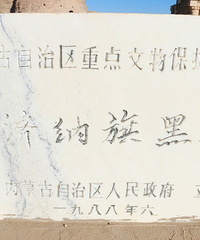 古自治区重点文物保护
济纳旗黑
内蒙古自治区人民政府 立
一九八八年六